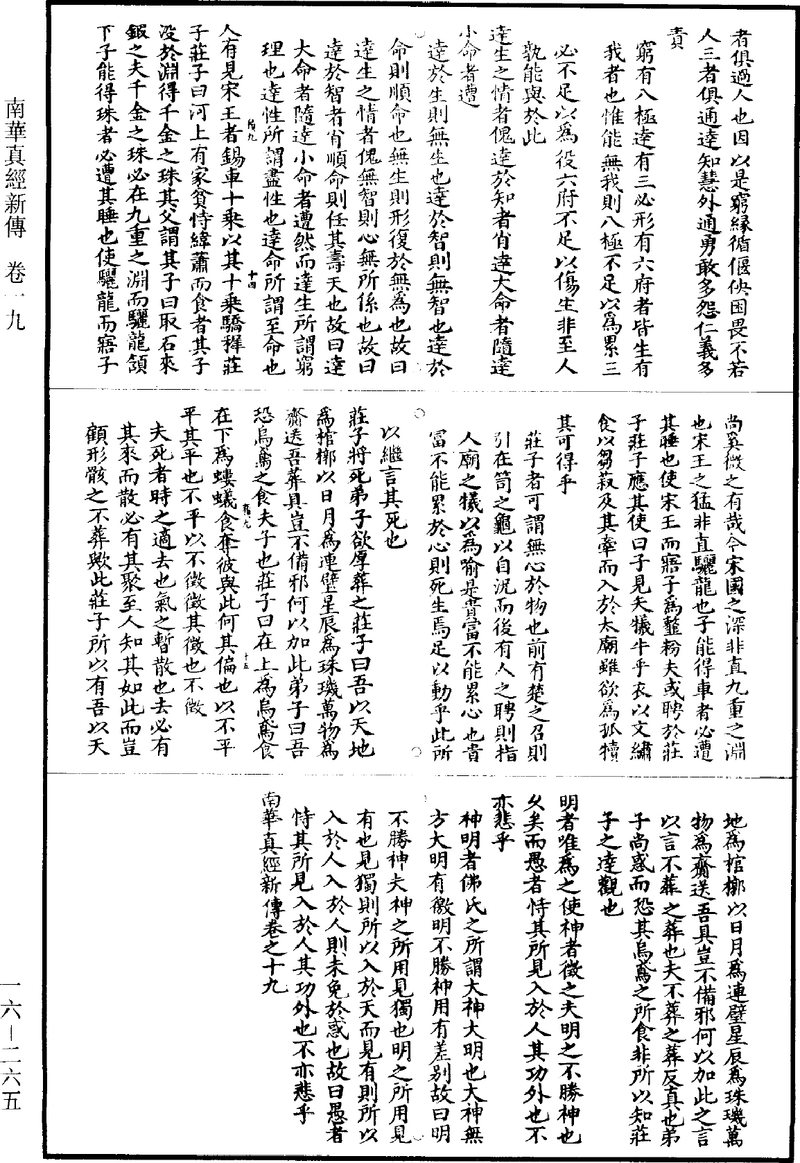 南華真經新傳　卷一九
者俱過人也因以是窮緣循偃佒困畏不若
人三者俱通達知慧外通勇敢多怨仁義多
責
窮有八極達有三必形有六府者皆生有
我者也惟能無我則八極不足以為累三
必不足以為役六府不足以傷生非至人
孰能與於此
達生之情者傀達於知者肖達大命者隨達
小命者遭
達於生則無生也達於智則無智也達於
命則順命也無生則形復於無為也故曰
達生之情者傀無智則心無所係也故曰
達於智者肖順命則任其壽夭也故曰達
大命者隨達小命者遭然而達生所謂窮
理也達性所謂盡性也達命所謂至命也
人有見宋王者錫車十乘以其十乘驕穉莊
子莊子曰河上有家貧恃緯蕭而食者其子
沒於淵得千金之珠其父謂其子曰取石來
鍜之夫千金之珠必在九重之淵而驪龍頷
下子能得珠者必遭其睡也使驪龍而寤子
尚奚微之有哉今宋國之深非直九重之淵
也宋王之猛非直驪龍也子能得車者必遭
其睡也使宋王而寤子為虀粉夫或聘於莊
子莊子應其使曰子見夫犧牛乎衣以文繡
食以芻菽及其牽而入於太廟雖欲為孤犢
其可得乎
莊子者可謂無心於物也前有楚之召則
引在笥之龜以自況而後有人之聘則指
人廟之犧以為喻是貴富不能累心也貴
富不能累於心則死生焉足以動乎此所
以繼言其死也
莊子將死弟子欲厚葬之莊子曰吾以天地
為棺槨以日月為連璧星辰為珠璣萬物為
齎送吾葬具豈不備邪何以加此弟子曰吾
恐烏鳶之食夫子也莊子曰在上為烏鳶食
在下為螻蟻食奪彼與此何其偏也以不平
平其平也不平以不徵徵其徵也不徵
夫死者時之適去也氣之暫散也去必有
其來而散必有其聚至人知其如此而豈
顧形骸之不葬歟此莊子所以有吾以天
地為棺槨以日月為連璧星辰為珠璣萬
物為齎送吾具豈不備邪何以加此之言
以言不葬之葬也夫不葬之葬反真也弟
子尚惑而恐其烏鳶之所食非所以知莊
子之達觀也
明者唯為之使神者徵之夫明之不勝神也
久矣而愚者恃其所見入於人其功外也不
亦悲乎
神明者佛氏之所謂大神大明也大神無
方大明有徵明不勝神用有差別故曰明
不勝神夫神之所用見獨也明之所用見
有也見獨則所以入於天而見有則所以
入於人入於人則未免於惑也故曰愚者
恃其所見入於人其功外也不亦悲乎
南華真經新傳卷之十九
一六—二六五